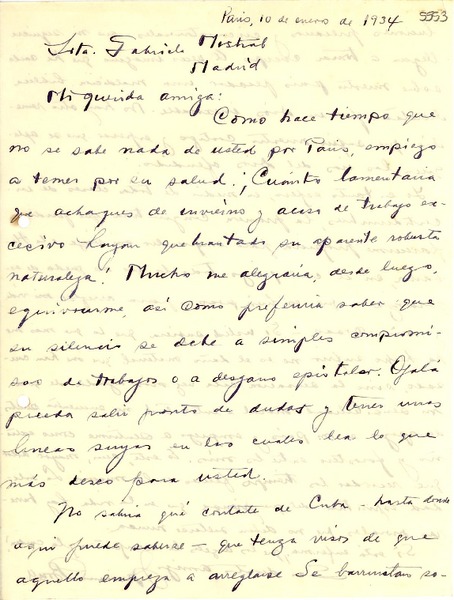 Paris, 10 de enero de 1934 5553
Srta. Gabriela Mistral
Madrid
Mi querida amiga:
Como hace tiempo que
no se sabe nada de usted por Paris, empiezo
a temer por su salud. ¡Cuánto lamentaria
que achaques de invierno y acaso de trabajo ex-
cesivo hayan quebrantado su aparente robusta
naturaleza! Mucho me alegraria, desde luego,
equivocarme, asi como preferiria saber que
su silencio se debe a simples compromi-
sos de trabajos o a desgano epistolar. Ojalá
pueda salir pronto de dudas y tener unas
lineas suyas en las cuales lea lo que
más deseo para usted.
No sabria qué contarle de Cuba - hasta donde
aqui puede saberse - que tenga visos de que
aquello empieza a arreglarse. Se barruntan so-